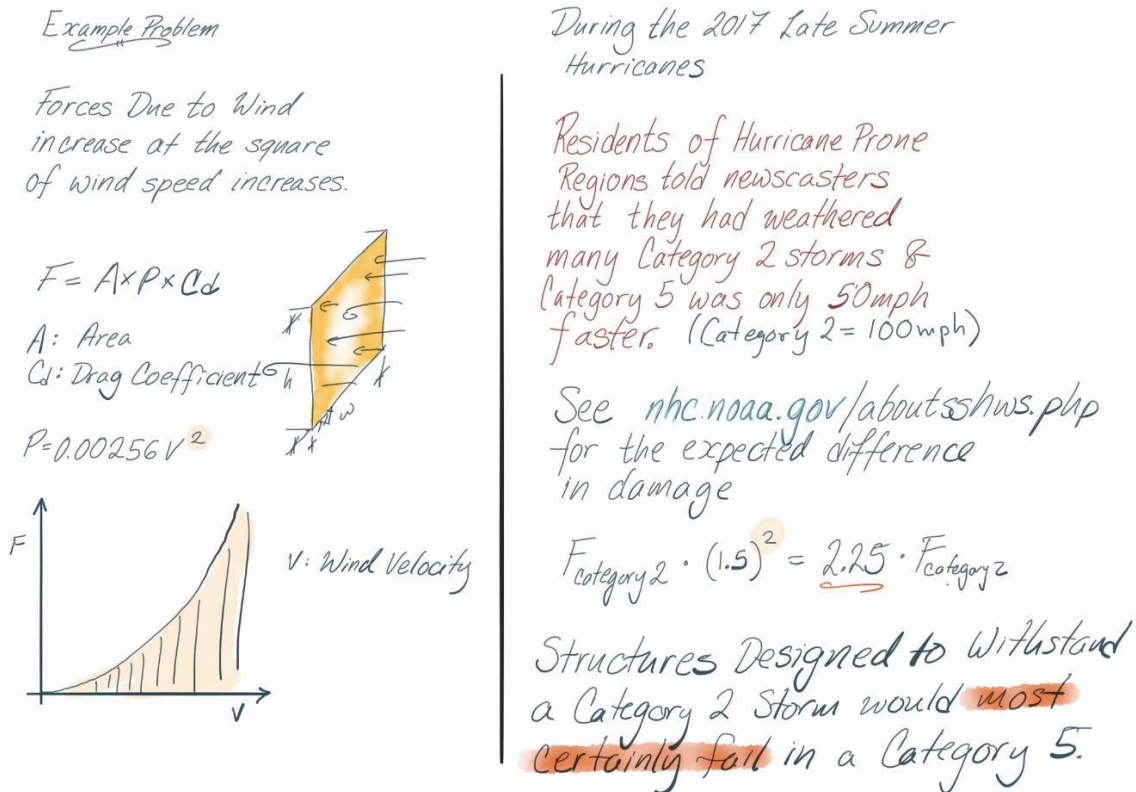 Example Problem
Forces Due to Wind
increase at the square
of wind speed increases.
F = A×P×Cd
A: Area
Cd: Drag Coefficient
h
w
P=0.00256V²
F
V
V: Wind Velocity
During the 2017 Late Summer
Hurricanes
Residents of Hurricane Prone
Regions told newscasters
that they had weathered
many Category 2 storms &
Category 5 was only 50mph
faster. (Category 2 = 100mph)
See nhc.noaa.gov/aboutsshws.php
for the expected difference
in damage
F category 2 · (1.5)² = 2.25 · F category 2
Structures Designed to Withstand
a Category 2 Storm would most
certainly fail in a Category 5.